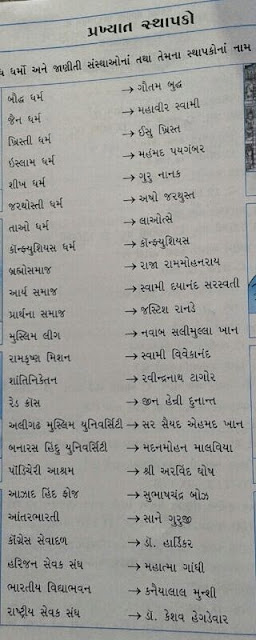 પ્રખ્યાત સ્થાપકો
ધ ધર્મો અને જાણીતી સંસ્થાઓનાં તથા તેમના સ્થાપકોનાં નામ
બૌદ્ધ ધર્મ → ગૌતમ બુદ્ધ
જૈન ધર્મ → મહાવીર સ્વામી
ખ્રિસ્તી ધર્મ → ઈસુ ખ્રિસ્ત
ઇસ્લામ ધર્મ → મહંમદ પયગંબર
શીખ ધર્મ → ગુરુ નાનક
જરથોસ્તી ધર્મ → અષો જરથુસ્ત
તાઓ ધર્મ → લાઓત્સે
કૉન્ફ્યુશિયસ ધર્મ → કૉન્ફ્યુશિયસ
બ્રહ્મોસમાજ → રાજા રામમોહનરાય
આર્ય સમાજ → સ્વામી દયાનંદ સરસ્વતી
પ્રાર્થના સમાજ → જસ્ટિશ રાનડે
મુસ્લિમ લીગ → નવાબ સલીમુલ્લા ખાન
રામકૃષ્ણ મિશન → સ્વામી વિવેકાનંદ
શાંતિનિકેતન → રવીન્દ્રનાથ ટાગોર
રેડ ક્રૉસ → જીન હેન્રી દુનાન્ત
અલીગઢ મુસ્લિમ યુનિવર્સિટી → સર સૈયદ એહમદ ખાન
બનારસ હિંદુ યુનિવર્સિટી → મદનમોહન માલવિયા
પૉંડિચેરી આશ્રમ → શ્રી અરવિંદ ઘોષ
આઝાદ હિંદ ફોજ → સુભાષચંદ્ર બોઝ
આંતરભારતી → સાને ગુરુજી
કૉંગ્રેસ સેવાદળ → ડૉ. હાર્ડિકર
હરિજન સેવક સંઘ → મહાત્મા ગાંધી
ભારતીય વિદ્યાભવન → કનૈયાલાલ મુન્શી
રાષ્ટ્રીય સેવક સંઘ → ડૉ. કેશવ હેગડેવાર